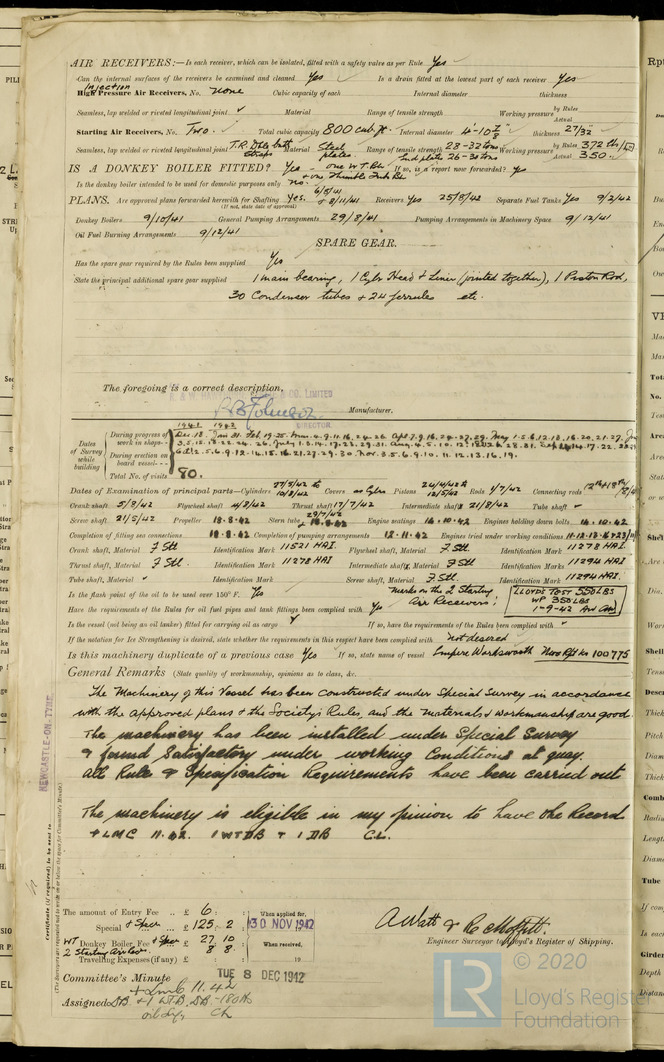 AIR RECEIVERS:—Is each receiver, which can be isolated, fitted with a safety valve as per Rule Yes
Can the internal surfaces of the receivers be examined and cleaned Yes Is a drain fitted at the lowest part of each receiver Yes
Injection
High Pressure Air Receivers, No. None Cubic capacity of each Internal diameter thickness
Seamless, lap welded or riveted longitudinal joint Material Range of tensile strength Working pressure by Rules Actual
Starting Air Receivers, No. Two. Total cubic capacity 800 cub. ft. Internal diameter 4'-10 7/8" thickness 27/32"
Seamless, lap welded or riveted longitudinal joint T.R. Dble butt straps Material Steel plates Range of tensile strength 28-32 tons End plates 26-30 tons Working pressure by Rules 372 Actual 350
IS A DONKEY BOILER FITTED? Yes - one W.T. Blr + one Thimble Tube Blr If so, is a report now forwarded? Yes
Is the donkey boiler intended to be used for domestic purposes only No.
PLANS. Are approved plans forwarded herewith for Shafting Yes. 6/8/41 + 8/11/41 Receivers Yes 25/8/42 Separate Fuel Tanks Yes 9/2/42
(If not, state date of approval)
Donkey Boilers 9/10/41 General Pumping Arrangements 29/8/41 Pumping Arrangements in Machinery Space 9/12/41
Oil Fuel Burning Arrangements 9/12/41
SPARE GEAR.
Has the spare gear required by the Rules been supplied Yes
State the principal additional spare gear supplied 1 main bearing, 1 Cylr Head & Liner (jointed together), 1 Piston Rod,
30 Condenser tubes & 24 ferrules etc.
The foregoing is a correct description,
CO. LIMITED
DIRECTOR.
Manufacturer.
Dates of Survey while building
1941 1942
During progress of work in shops - -
During erection on board vessel - - -
Total No. of visits 80.
Dates of Examination of principal parts—Cylinders 27/5/42 to 10/8/42 Covers as Cylrs Pistons 12/5/42 Rods 4/7/42 Connecting rods
Crank shaft 5/8/42 Flywheel shaft 4/8/42 Thrust shaft 17/7/42 Intermediate shafts 21/8/42 Tube shaft
Screw shaft 21/5/42 Propeller 18.8.42 Stern tube 29/7/42 + 18.8.42 Engine seatings 16.10.42 Engines holding down bolts 16.10.42
Completion of fitting sea connections 18.8.42 Completion of pumping arrangements 12.11.42 Engines tried under working conditions
Crank shaft, Material I. Stl Identification Mark 11521 HAI. Flywheel shaft, Material I. Stl. Identification Mark 11278 HAI.
Thrust shaft, Material I. Stl. Identification Mark 11278 HAI Intermediate shafts, Material I. Stl Identification Marks 11294 HAI
Tube shaft, Material Identification Mark Screw shaft, Material I. Stl. Identification Mark 11294 HAI.
Is the flash point of the oil to be used over 150° F. Yes Marks on the 2 Starting Air Receivers:
LLOYD'S TEST 550 LBS
WP 350 LBS
1-9-42
Have the requirements of the Rules for oil fuel pipes and tank fittings been complied with Yes
Is the vessel (not being an oil tanker) fitted for carrying oil as cargo If so, have the requirements of the Rules been complied with
If the notation for Ice Strengthening is desired, state whether the requirements in this respect have been complied with Not desired
Is this machinery duplicate of a previous case Yes If so, state name of vessel Empire Wordsworth Nwc Rpt No 100775
General Remarks (State quality of workmanship, opinions as to class, &c.
The Machinery of this Vessel has been constructed under Special Survey in accordance
with the approved plans & the Society's Rules, and the materials & workmanship are good.
The machinery has been installed under Special Survey
& found Satisfactory under working conditions at quay.
All Rule & Specification Requirements have been carried out
The machinery is eligible in my opinion to have the Record
+ LMC 11.42. 1 WTDB + 1 DB CL.
NEWCASTLE-ON-TYNE
Certificate (if required) to be sent to
(The Surveyors are requested not to write on or below the space for Committee's Minute.)
The amount of Entry Fee .. £ 6 :
Special + Spec .. £ 125 : 2
WT Donkey Boiler Fee + Spec £ 27 : 10
2 Starting Air Recs 8 : 8.
Travelling Expenses (if any) £ :
When applied for,
30 NOV 1942
When received,
19
A Watt & Engineer Surveyor to Lloyd's Register of Shipping.
Committee's Minute TUE 8 DEC 1942
+ LMC 11.42
Assigned
CL
© 2020
LR
Lloyd's Register
Foundation